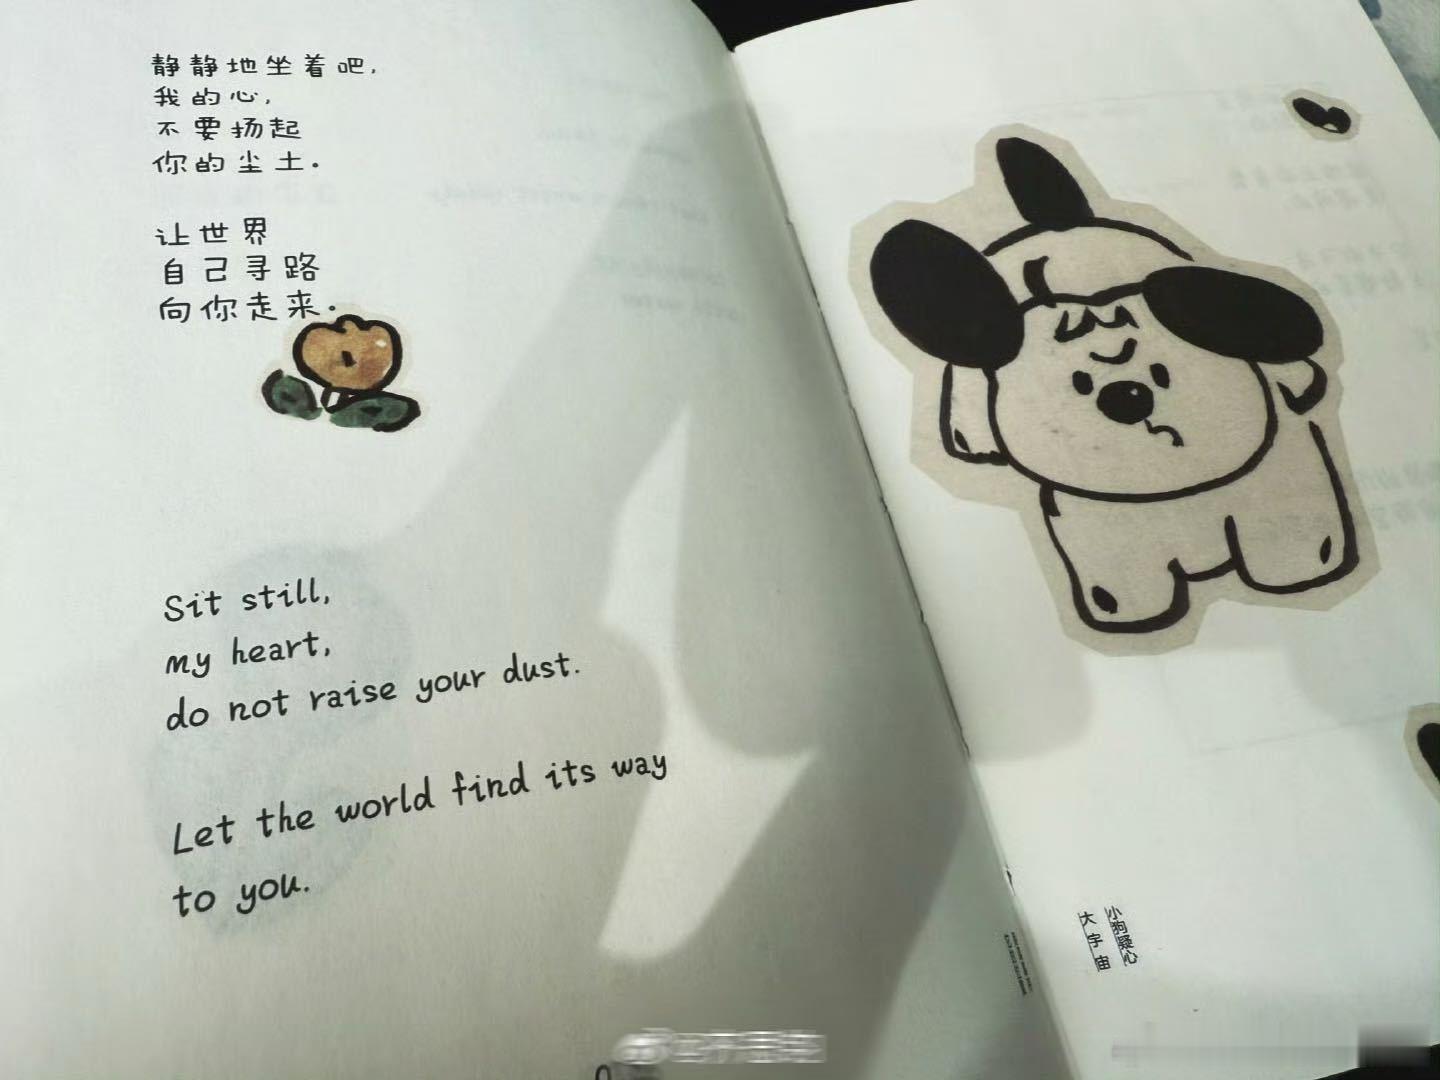 静静地坐着吧,
我的心,
不要扬起
你的尘土.
让世界
自己寻路
向你走来.
Sit still,
my heart,
do not raise your dust.
Let the world find its way
to you.
小狗疑心
大宇宙